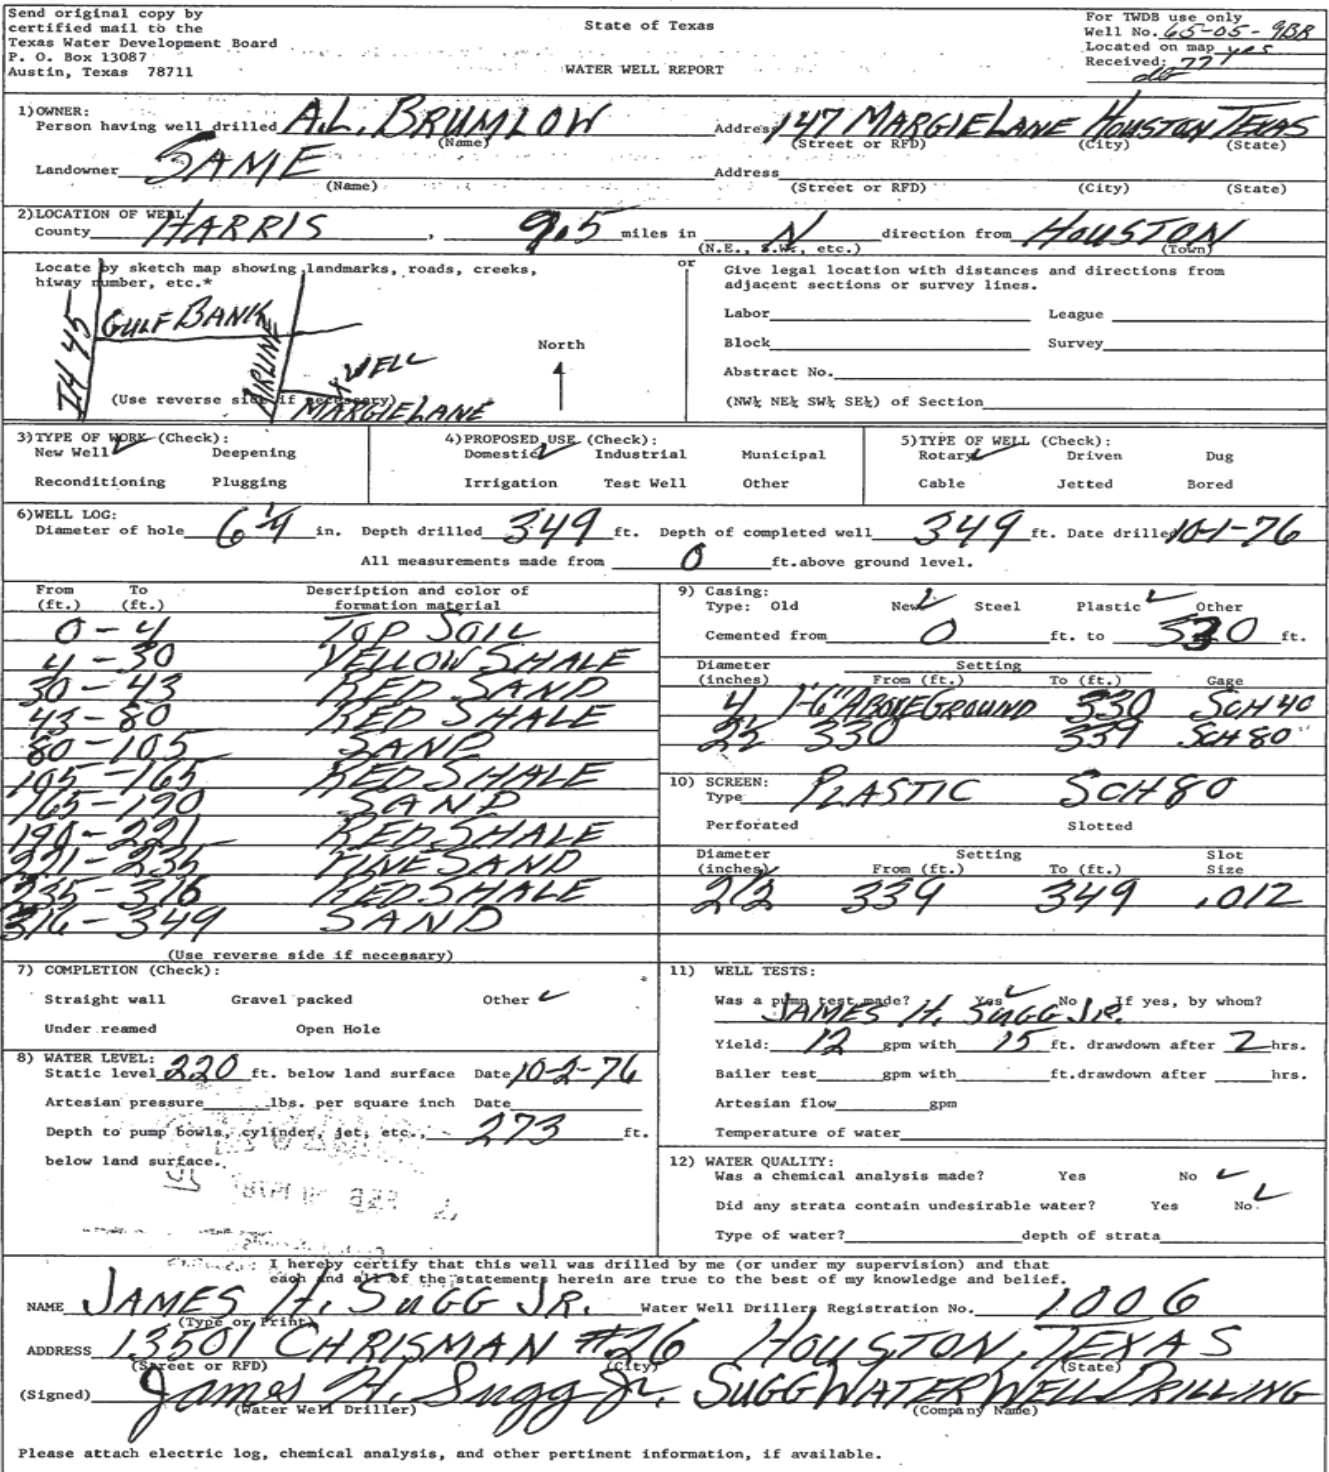 Send original copy by
certified mail to the
Texas Water Development Board
P. O. Box 13087
Austin, Texas 78711
State of Texas
WATER WELL REPORT
For TWDB use only
Well No. 65-05-9BR
Located on map yes
Received: 777
1) OWNER:
Person having well drilled A.L. BRUMLOW Address 147 MARGIE LANE HOUSTON TEXAS
(Name) (Street or RFD) (City) (State)
Landowner SAME Address
(Name) (Street or RFD) (City) (State)
2) LOCATION OF WELL:
County HARRIS, 9.5 miles in N direction from HOUSTON
(N.E., S.W., etc.) (Town)
Locate by sketch map showing landmarks, roads, creeks,
hiway number, etc.*
IH 45
GULF BANK
AIRLINE
X WELL
MARGIE LANE
North
(Use reverse side if necessary)
or
Give legal location with distances and directions from
adjacent sections or survey lines.
Labor League
Block Survey
Abstract No.
(NW¼ NE¼ SW¼ SE¼) of Section
3) TYPE OF WORK (Check):
New Well ✓ Deepening
Reconditioning Plugging
4) PROPOSED USE (Check):
Domestic ✓ Industrial Municipal
Irrigation Test Well Other
5) TYPE OF WELL (Check):
Rotary ✓ Driven Dug
Cable Jetted Bored
6) WELL LOG:
Diameter of hole 6 1/4 in. Depth drilled 349 ft. Depth of completed well 349 ft. Date drilled 10-1-76
All measurements made from 0 ft. above ground level.
From To Description and color of
(ft.) (ft.) formation material
0-4 TOP SOIL
4-30 YELLOW SHALE
30-43 RED SAND
43-80 RED SHALE
80-105 SAND
105-165 RED SHALE
165-190 SAND
190-221 RED SHALE
221-235 FINE SAND
235-316 RED SHALE
316-349 SAND
(Use reverse side if necessary)
9) Casing:
Type: Old New ✓ Steel Plastic ✓ Other
Cemented from 0 ft. to 330 ft.
Diameter Setting
(inches) From (ft.) To (ft.) Gage
4 1'-6" ABOVE GROUND 330 SCH 40
2½ 330 339 SCH 80
10) SCREEN:
Type PLASTIC SCH 80
Perforated Slotted
Diameter Setting Slot
(inches) From (ft.) To (ft.) Size
2½ 339 349 .012
7) COMPLETION (Check):
Straight wall Gravel packed Other ✓
Under reamed Open Hole
8) WATER LEVEL:
Static level 220 ft. below land surface Date 10-2-76
Artesian pressure lbs. per square inch Date
Depth to pump bowls, cylinder, jet, etc., 273 ft.
below land surface.
11) WELL TESTS:
Was a pump test made? Yes ✓ No If yes, by whom?
JAMES H. SUGG JR.
Yield: 12 gpm with 15 ft. drawdown after 2 hrs.
Bailer test gpm with ft. drawdown after hrs.
Artesian flow gpm
Temperature of water
12) WATER QUALITY:
Was a chemical analysis made? Yes No ✓
Did any strata contain undesirable water? Yes No ✓
Type of water? depth of strata
I hereby certify that this well was drilled by me (or under my supervision) and that
each and all of the statements herein are true to the best of my knowledge and belief.
NAME JAMES H. SUGG JR. Water Well Drillers Registration No. 1006
(Type or Print)
ADDRESS 13501 CHRISMAN #26 HOUSTON, TEXAS
(Street or RFD) (City) (State)
(Signed) James H. Sugg Jr. SUGG WATER WELL DRILLING
(Water Well Driller) (Company Name)
Please attach electric log, chemical analysis, and other pertinent information, if available.